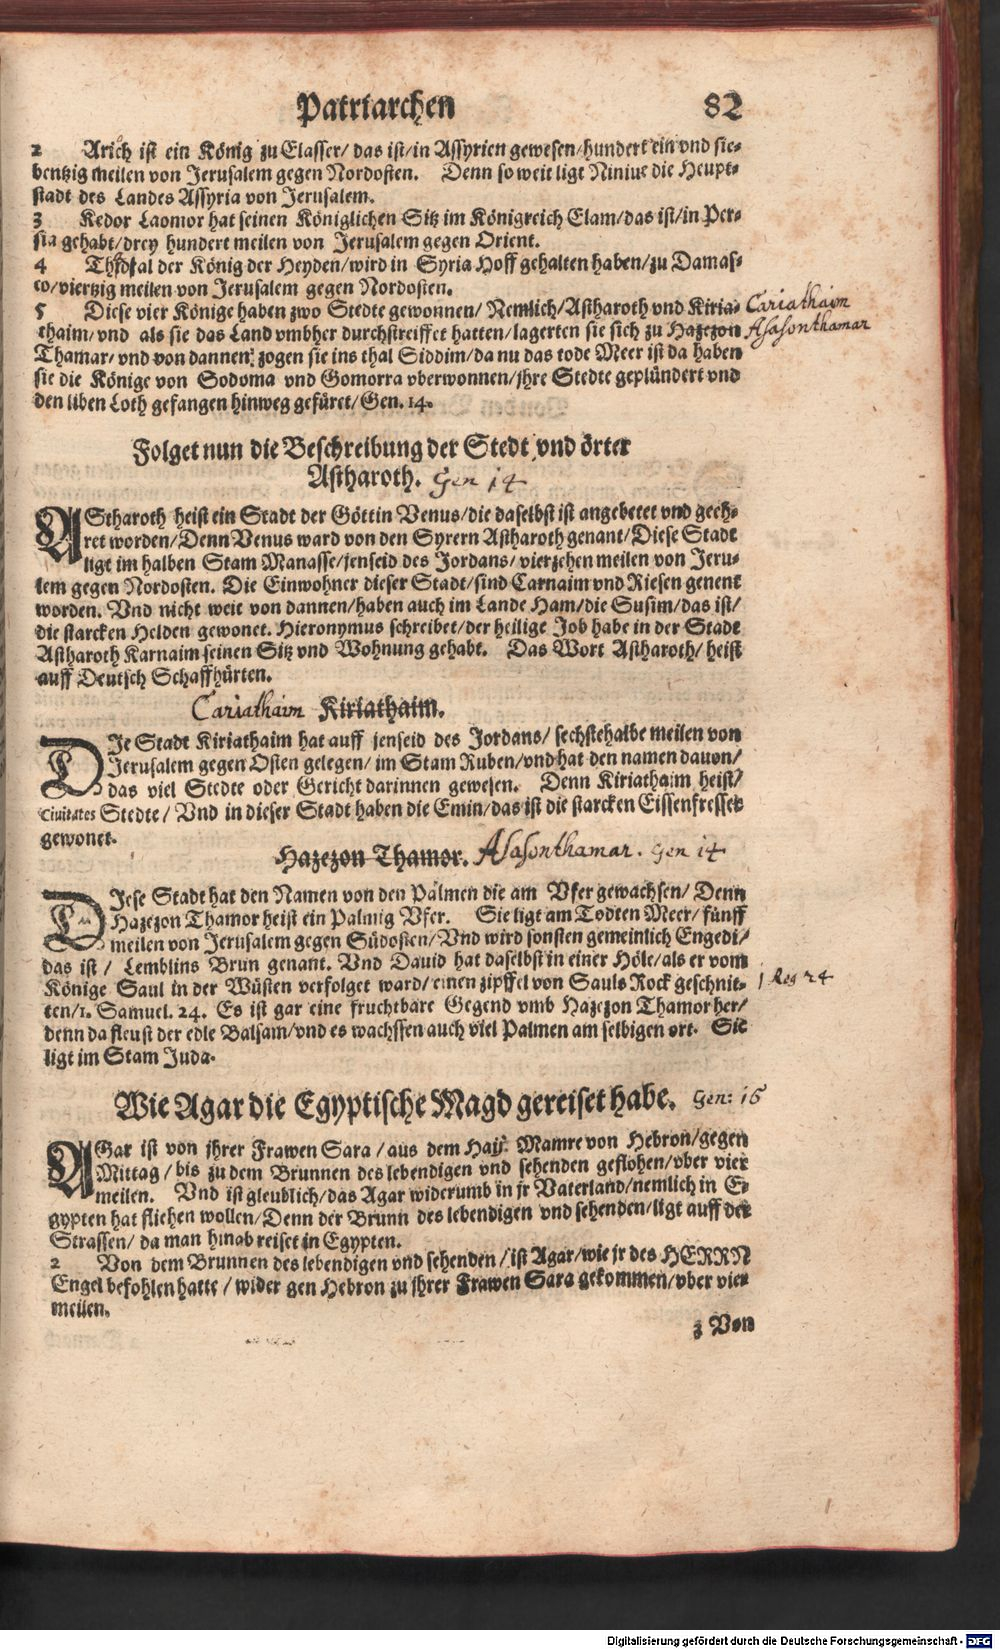 Patriarchen 82
2 Arioch ist ein König zu Elasser/ das ist/ in Assyrien gewesen/ hundert ein vnd sie-
bentzig meilen von Jerusalem gegen Nordosten. Denn so weit ligt Niniue die Heupt-
stadt des Landes Assyria von Jerusalem.
3 Kedor Laomor hat seinen Königlichen Sitz im Königreich Elam/ das ist/ in Per-
sia gehabt/ drey hundert meilen von Jerusalem gegen Orient.
4 der König der Heyden/ wird in Syria Hoff gehalten haben/ zu Damas-
co/ viertzig meilen von Jerusalem gegen Nordosten.
5 Diese vier Könige haben zwo Stedte gewonnen/ Nemlich/ Astharoth vnd Kiria- Cariathaim
thaim/ vnd als sie das Land vmbher durchstreiffet hatten/ lagerten sie sich zu Hazezon Asasonthamar
Thamar/ vnd von dannen zogen sie ins thal Siddim/ da nu das tode Meer ist da haben
sie die Könige von Sodoma vnd Gomorra vberwonnen/ jhre Stedte geplündert vnd
den liben Loth gefangen hinweg gefüret/ Gen. 14.
Folget nun die Beschreibung der Stedt vnd örter
Astharoth. Gen 14
AStharoth heist ein Stadt der Göttin Venus/ die daselbst ist angebetet vnd geeh-
ret worden/ Denn Venus ward von den Syrern Astharoth genant/ Diese Stadt
ligt im halben Stam Manasse/ jenseid des Jordans/ vierzehen meilen von Jeru-
lem gegen Nordosten. Die Einwohner dieser Stadt/ sind Carnaim vnd Riesen genent
worden. Vnd nicht weit von dannen/ haben auch im Lande Ham/ die Susim/ das ist/
die starcken Helden gewonet. Hieronymus schreibet/ der heilige Job habe in der Stadt
Astharoth Karnaim seinen Sitz vnd Wohnung gehabt. Das Wort Astharoth/ heist
auff Deutsch Schaffhürten.
Cariathaim Kiriathaim.
DIe Stadt Kiriathaim hat auff jenseid des Jordans/ sechstehalbe meilen von
Jerusalem gegen Osten gelegen/ im Stam Ruben/ vnd hat den namen dauon/
das viel Stedte oder Gericht darinnen gewesen. Denn Kiriathaim heist/
Ciuitates Stedte/ Vnd in dieser Stadt haben die Emin/ das ist die starcken Eissenfresser
gewonet.
Hazezon Thamor. Asasonthamar. Gen 14
DIese Stadt hat den Namen von den Palmen die am Vfer gewachsen/ Denn
Hazezon Thamor heist ein Palmig Vfer. Sie ligt am Todten Meer/ fünff
meilen von Jerusalem gegen Südosten/ Vnd wird sonsten gemeinlich Engedi/
das ist/ Lemblins Brun genant. Vnd Dauid hat daselbst in einer Höle/ als er vom
Könige Saul in der Wüsten verfolget ward/ einen zipffel von Sauls Rock geschnit- 1 Reg 24
ten/ 1. Samuel. 24. Es ist gar eine fruchtbare Gegend vmb Hazezon Thamor her/
denn da fleust der edle Balsam/ vnd es wachssen auch viel Palmen am selbigen ort. Sie
ligt im Stam Juda.
Wie Agar die Egyptische Magd gereiset habe. Gen: 16
AGar ist von jhrer Frawen Sara/ aus dem Hayn Mamre von Hebron/ gegen
Mittag/ bis zu dem Brunnen des lebendigen vnd sehenden geflohen/ vber vier
meilen. Vnd ist gleublich/ das Agar widerumb in jr Vaterland/ nemlich in E-
gypten hat fliehen wollen/ Denn der Brunn des lebendigen vnd sehenden/ ligt auff der
Strassen/ da man hinab reiset in Egypten.
2 Von dem Brunnen des lebendigen vnd sehenden/ ist Agar/ wie jr des HERRN
Engel befohlen hatte/ wider gen Hebron zu jhrer Frawen Sara gekommen/ vber vier
meilen.
3 Von
Digitalisierung gefördert durch die Deutsche Forschungsgemeinschaft - DFG